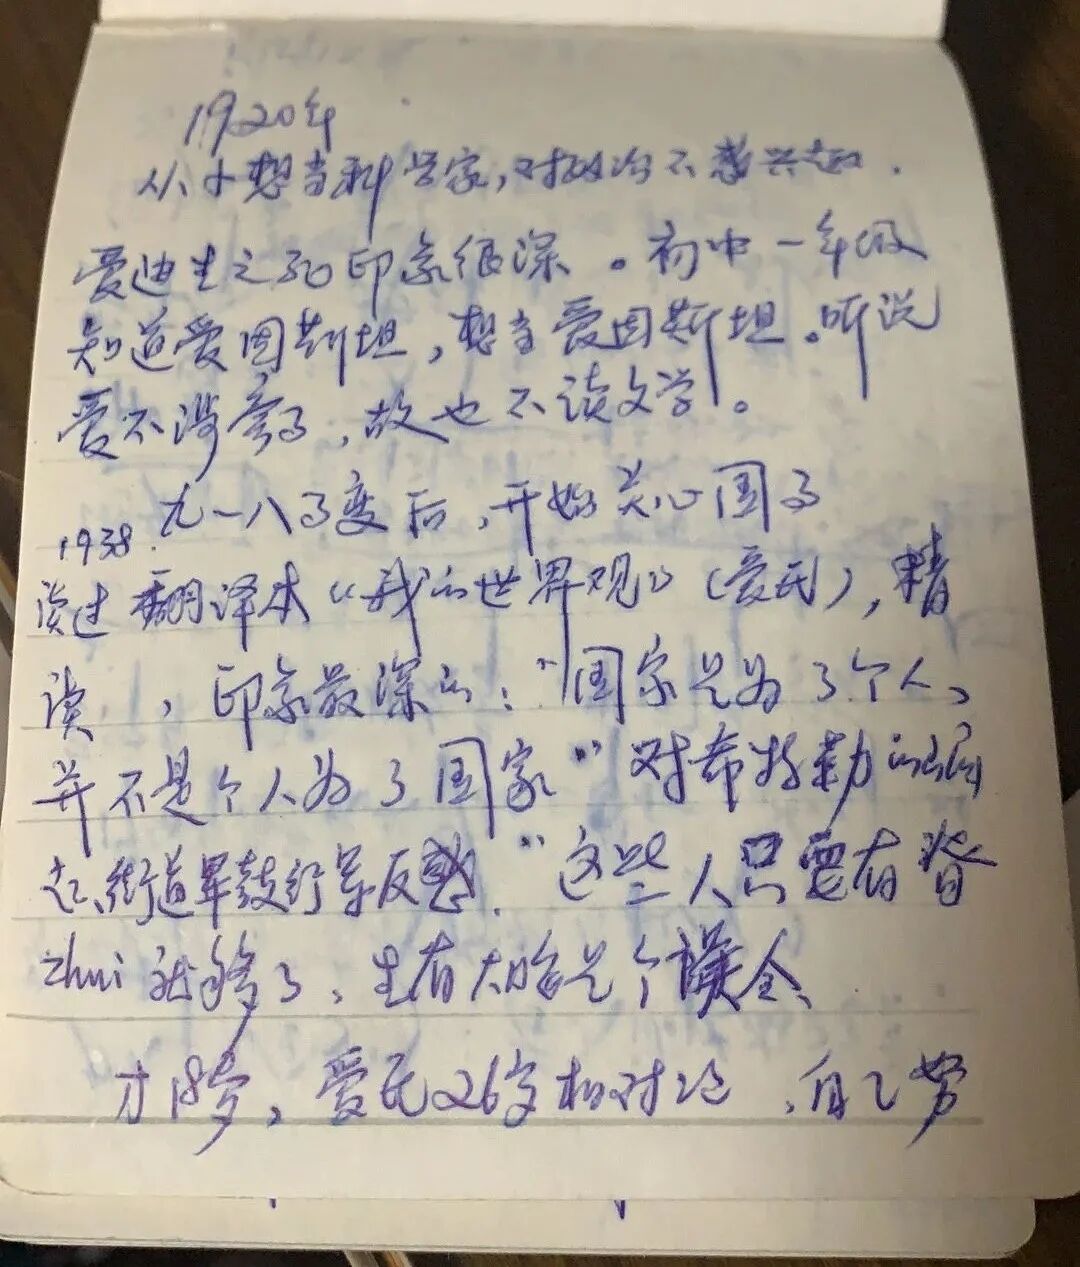 1920年
从小想当科学家，对政治不感兴趣．
爱迪生之死印象很深。初中一年级
知道爱因斯坦，想当爱因斯坦。听说
爱不
，故也不读文学。
九一八事变后，开始关心国事
1938
读过翻译本《我的世界观》(爱氏)，精
读，印象最深的："国家是为了个人、
并不是个人为了国家" 对希特勒的
起、街道军鼓行军反感．"这些人只要有脊
zhui 就够了、生有大脑是个误会、
才18岁，爱氏26岁相对论、自己努